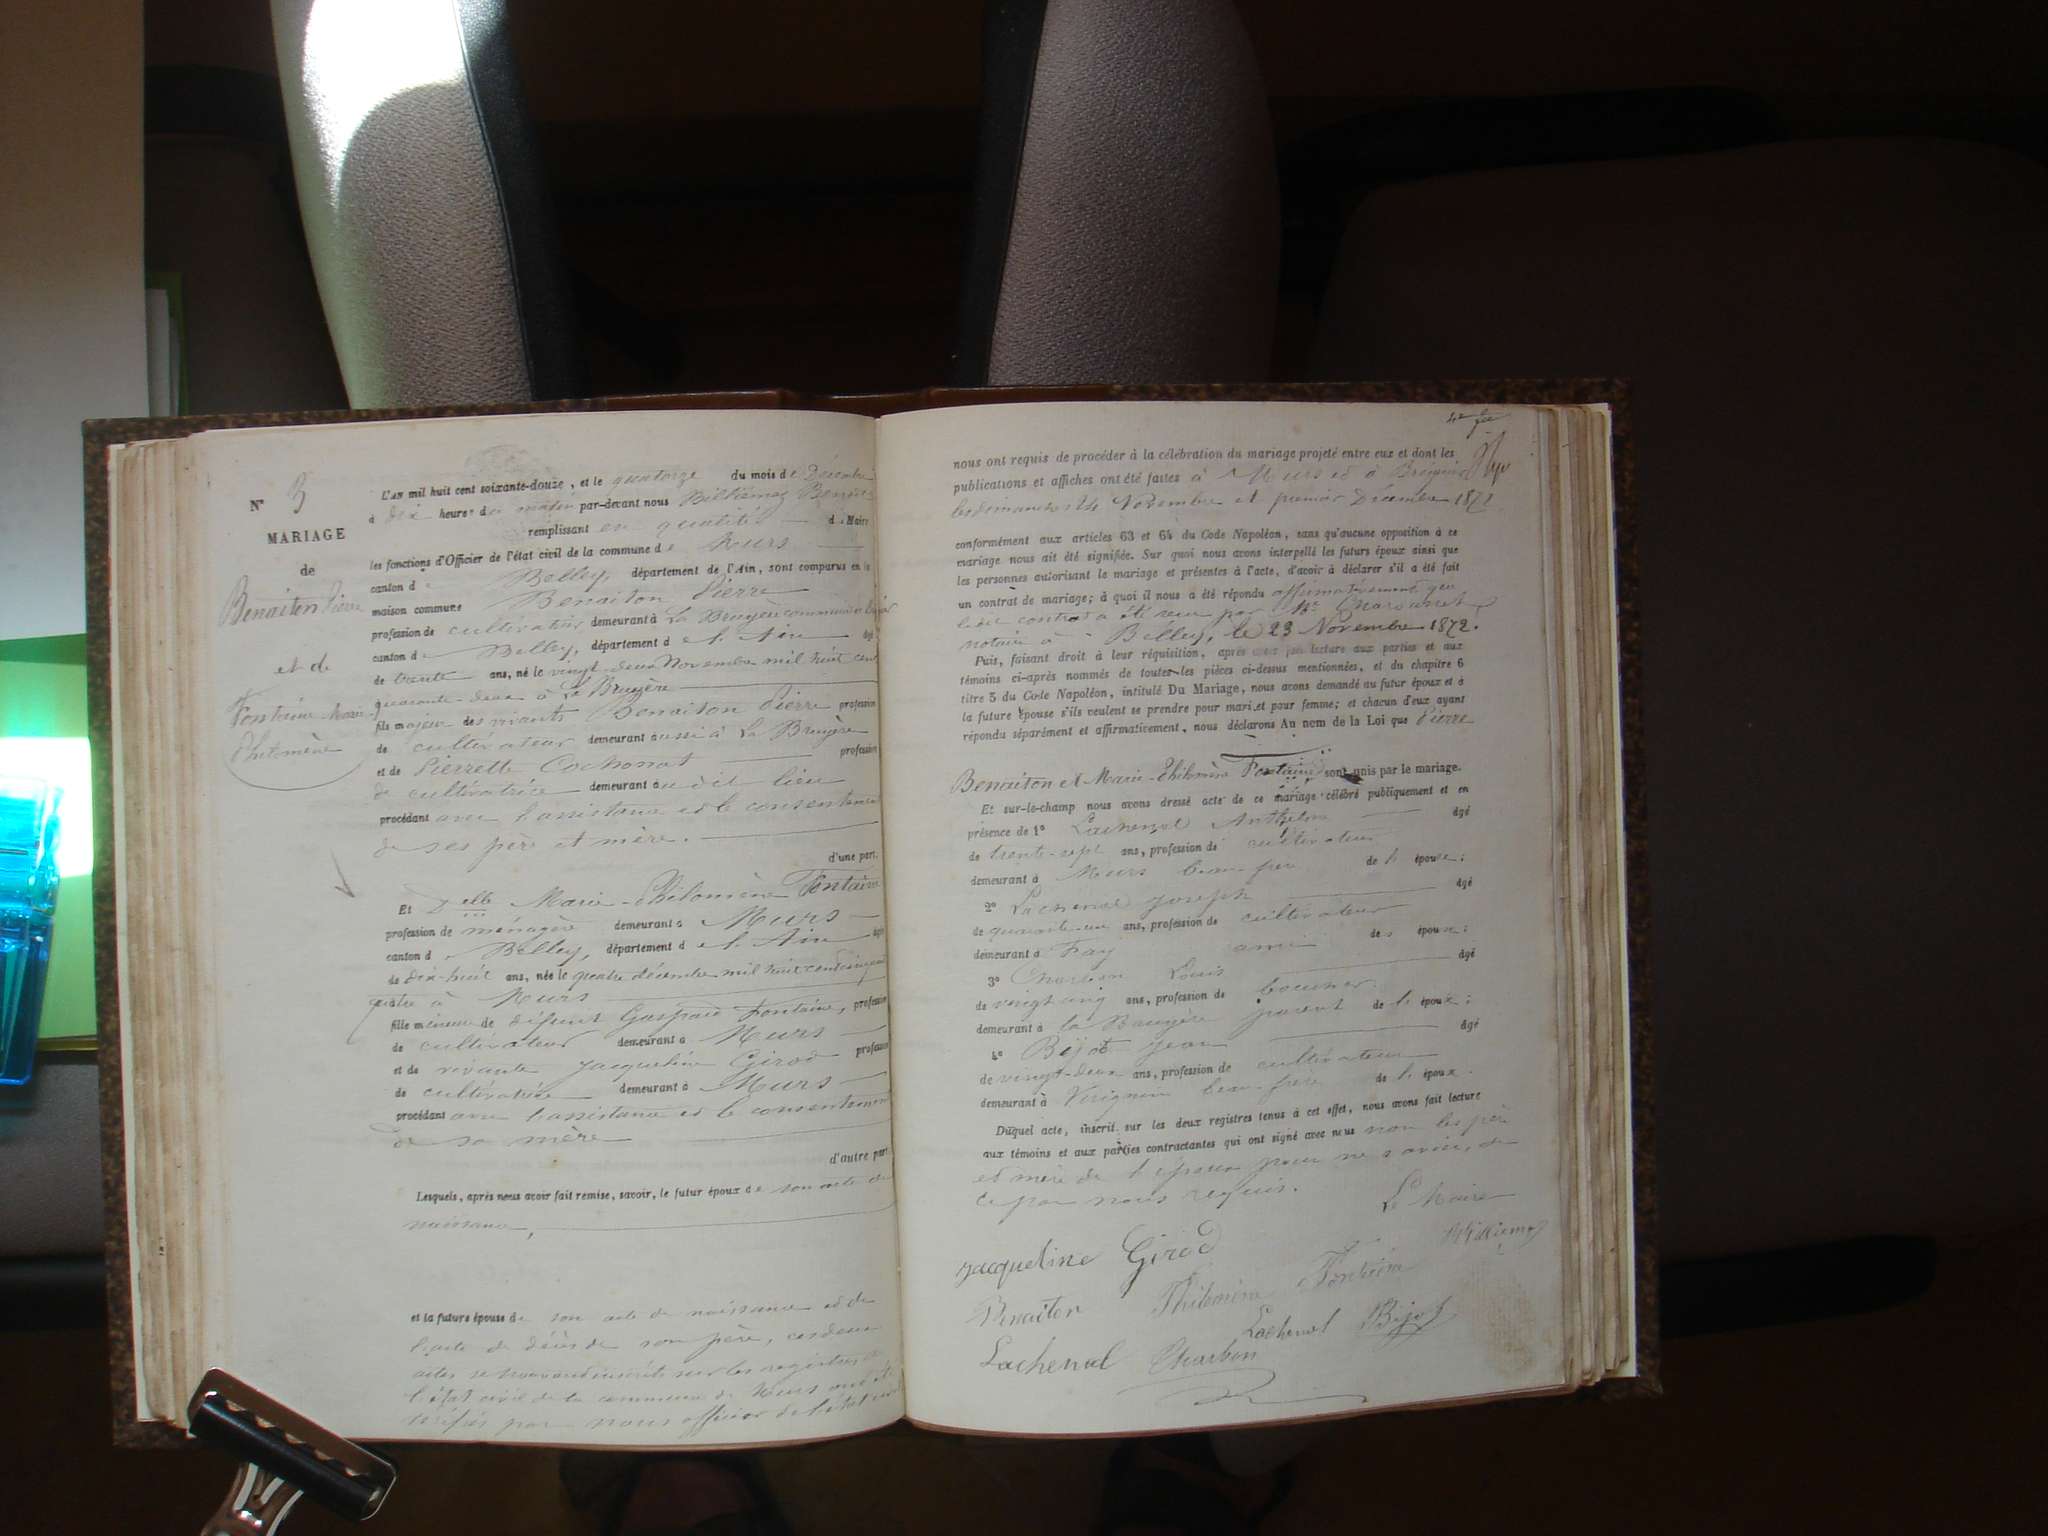 N° 3
MARIAGE
de
Benaiton Pierre
et de
Fontaine Marie
Philomène
L'AN mil huit cent soixante-douze, et le quatorze du mois de Décembre
à dix heures du matin par-devant nous Billiémaz Benoit
remplissant en qualité de Maire
les fonctions d'Officier de l'état civil de la commune de Murs
canton de Belley, département de l'Ain, sont comparus en la
maison commune Benaiton Pierre
profession de cultivateur demeurant à La Bruyère commune de
canton de Belley, département de l'Ain âgé
de trente ans, né le vingt-deux Novembre mil huit cent
quarante-deux à La Bruyère
fils majeur des vivants Benaiton Pierre profession
de cultivateur demeurant aussi à La Bruyère
et de Pierrette Cochonat profession
de cultivatrice demeurant au dit lieu
procédant avec l'assistance et le consentement
de ses père et mère.
d'une part.
Et Delle Marie-Philomène Fontaine
profession de ménagère demeurant à Murs
canton de Belley, département de l'Ain âgée
de dix-huit ans, née le quatre décembre mil huit cent cinquante
quatre à Murs
fille mineure de défunt Gaspard Fontaine, profession
de cultivateur demeurant à Murs
et de vivante Jacqueline Girod profession
de cultivatrice demeurant à Murs
procédant avec l'assistance et le consentement
de sa mère
d'autre part.
Lesquels, après nous avoir fait remise, savoir, le futur époux de son acte de
naissance,
et la future épouse de son acte de naissance et de
l'acte de décès de son père, ces deux
actes se trouvant inscrits sur les registres de
l'état civil de la commune de Murs ont été
vérifiés par nous officier de l'état civil
nous ont requis de procéder à la célébration du mariage projeté entre eux et dont les
publications et affiches ont été faites à Murs et à
les dimanches 24 Novembre et premier Décembre 1872
conformément aux articles 63 et 64 du Code Napoléon, sans qu'aucune opposition à ce
mariage nous ait été signifiée. Sur quoi nous avons interpellé les futurs époux ainsi que
les personnes autorisant le mariage et présentes à l'acte, d'avoir à déclarer s'il a été fait
un contrat de mariage; à quoi il nous a été répondu affirmativement que
le dit contrat a été reçu par Me
notaire à Belley, le 23 Novembre 1872.
Puis, faisant droit à leur réquisition, après avoir fait lecture aux parties et aux
témoins ci-après nommés de toutes les pièces ci-dessus mentionnées, et du chapitre 6
titre 5 du Code Napoléon, intitulé Du Mariage, nous avons demandé au futur époux et à
la future épouse s'ils veulent se prendre pour mari et pour femme; et chacun d'eux ayant
répondu séparément et affirmativement, nous déclarons Au nom de la Loi que Pierre
Benaiton et Marie-Philomène Fontaine sont unis par le mariage.
Et sur-le-champ nous avons dressé acte de ce mariage célébré publiquement et en
présence de 1° Lachenal Anthelme âgé
de trente-sept ans, profession de cultivateur
demeurant à Murs beau-frère de l'épouse;
2° Lachenal Joseph âgé
de quarante-un ans, profession de cultivateur
demeurant à Fay ami des époux;
3° Charbon Louis âgé
de vingt cinq ans, profession de boucher
demeurant à la Bruyère parent de l'époux;
4° Bijot Jean âgé
de vingt-deux ans, profession de cultivateur
demeurant à Virignin beau-frère de l'époux.
Duquel acte, inscrit sur les deux registres tenus à cet effet, nous avons fait lecture
aux témoins et aux parties contractantes qui ont signé avec nous non les père
et mère de l'époux pour ne savoir, de
ce par nous requis.
Le Maire
Billiémaz
Jacqueline Girod
Benaiton Philomène Fontaine
Lachenal Bijot
Lachenal Charbon